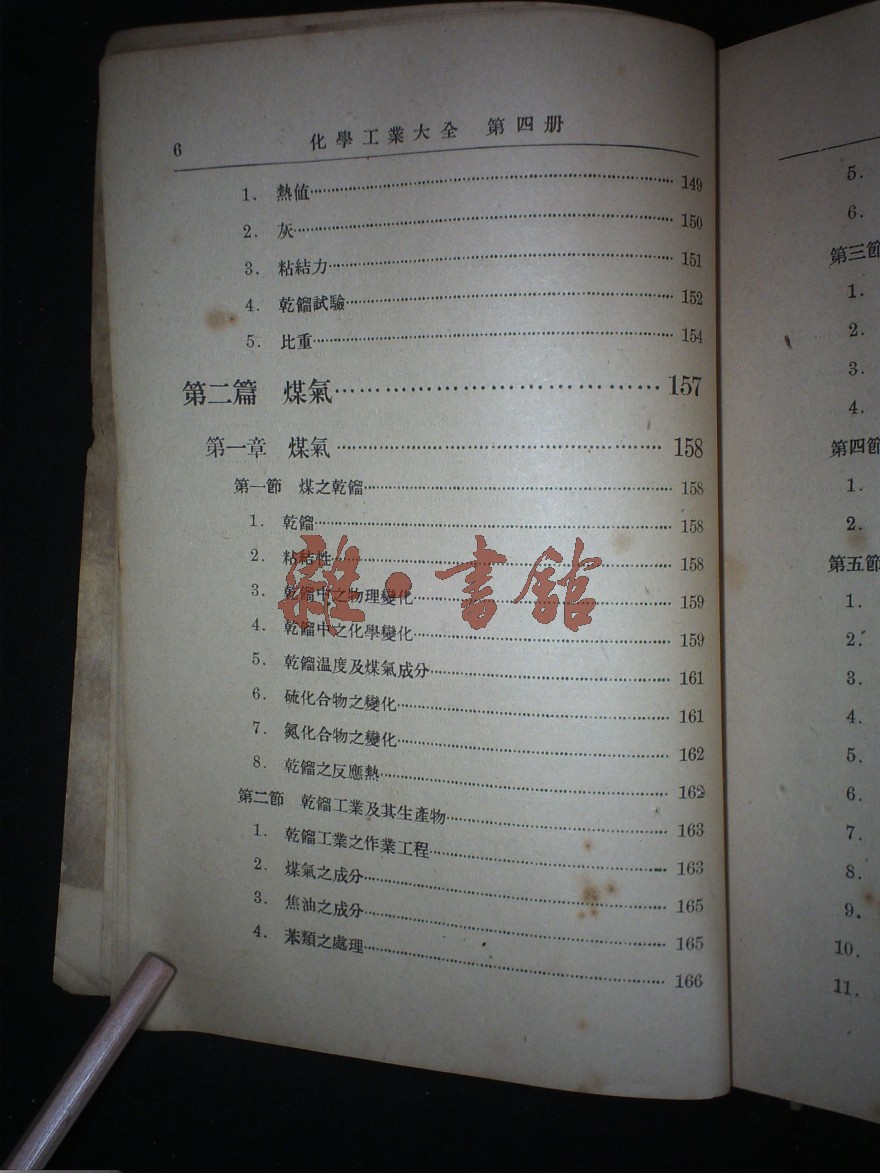 6 化學工業大全 第四册
1. 熱值 149
2. 灰 150
3. 粘結力 151
4. 乾餾試驗 152
5. 比重 154
第二篇 煤氣 157
第一章 煤氣 158
第一節 煤之乾餾 158
1. 乾餾 158
2. 粘結性 158
3. 乾餾中之物理變化 159
4. 乾餾中之化學變化 159
5. 乾餾温度及煤氣成分 161
6. 硫化合物之變化 161
7. 氮化合物之變化 162
8. 乾餾之反應熱 162
第二節 乾餾工業及其生產物 163
1. 乾餾工業之作業工程 163
2. 煤氣之成分 165
3. 焦油之成分 165
4. 苯類之處理 166
雜·書館
5.
6.
第三節
1.
2.
3.
4.
第四節
1.
2.
第五節
1.
2.
3.
4.
5.
6.
7.
8.
9.
10.
11.